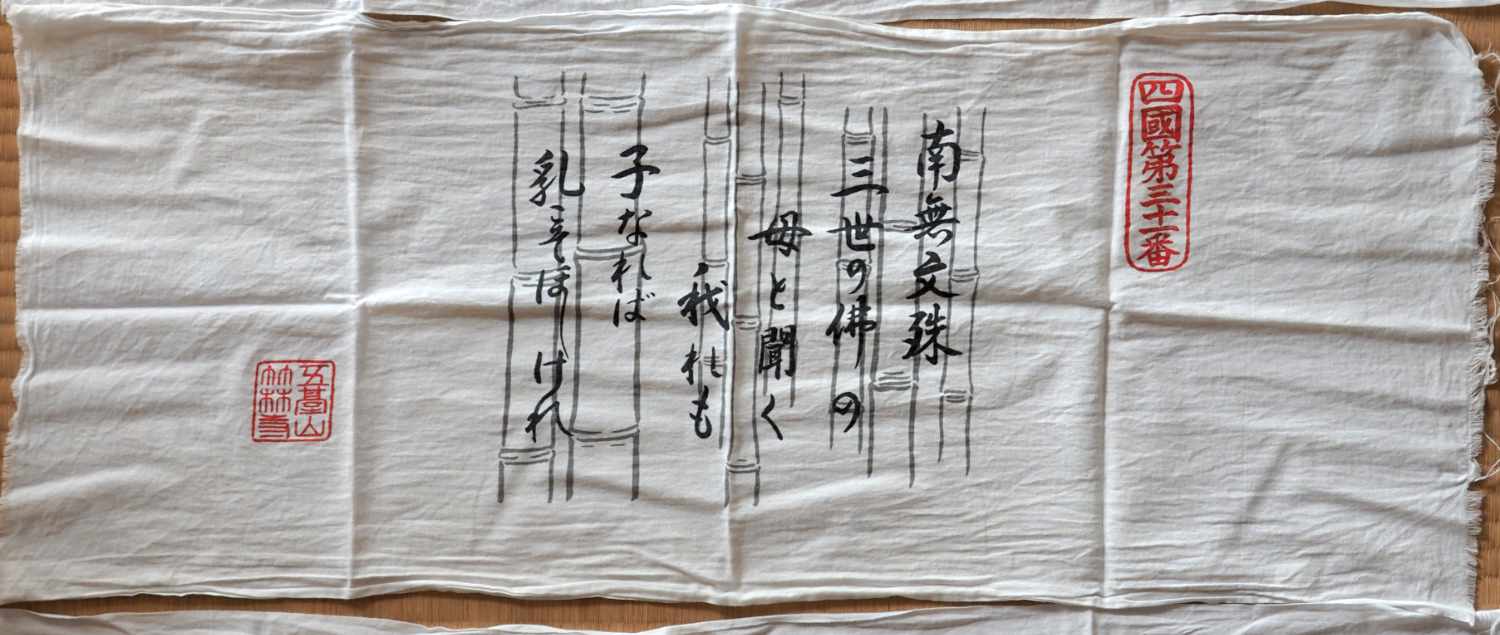 四國第三十一番
南無文殊
三世の佛の
母と聞く
我れも
子なれば
乳こそほしけれ
五臺山
竹林寺